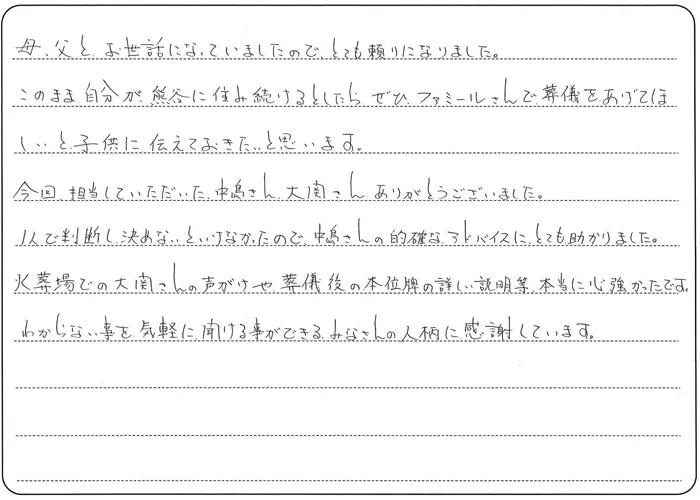 母、父と、お世話になっていましたので、とても頼りになりました。
このまま自分が、熊谷に住み続けるとしたら、ぜひ、ファミールさんで葬儀をあげてほ
しいと子供に伝えておきたいと思います。
今回、担当していただいた、中島さん、大関さん、ありがとうございました。
1人で判断し決めないといけなかったので、中島さんの的確なアドバイスに、とても助かりました。
火葬場での大関さんの声がけや、葬儀後の本位牌の詳しい説明等、本当に心強かったです。
わからない事を、気軽に聞ける事ができる、みなさんの人柄に感謝しています。